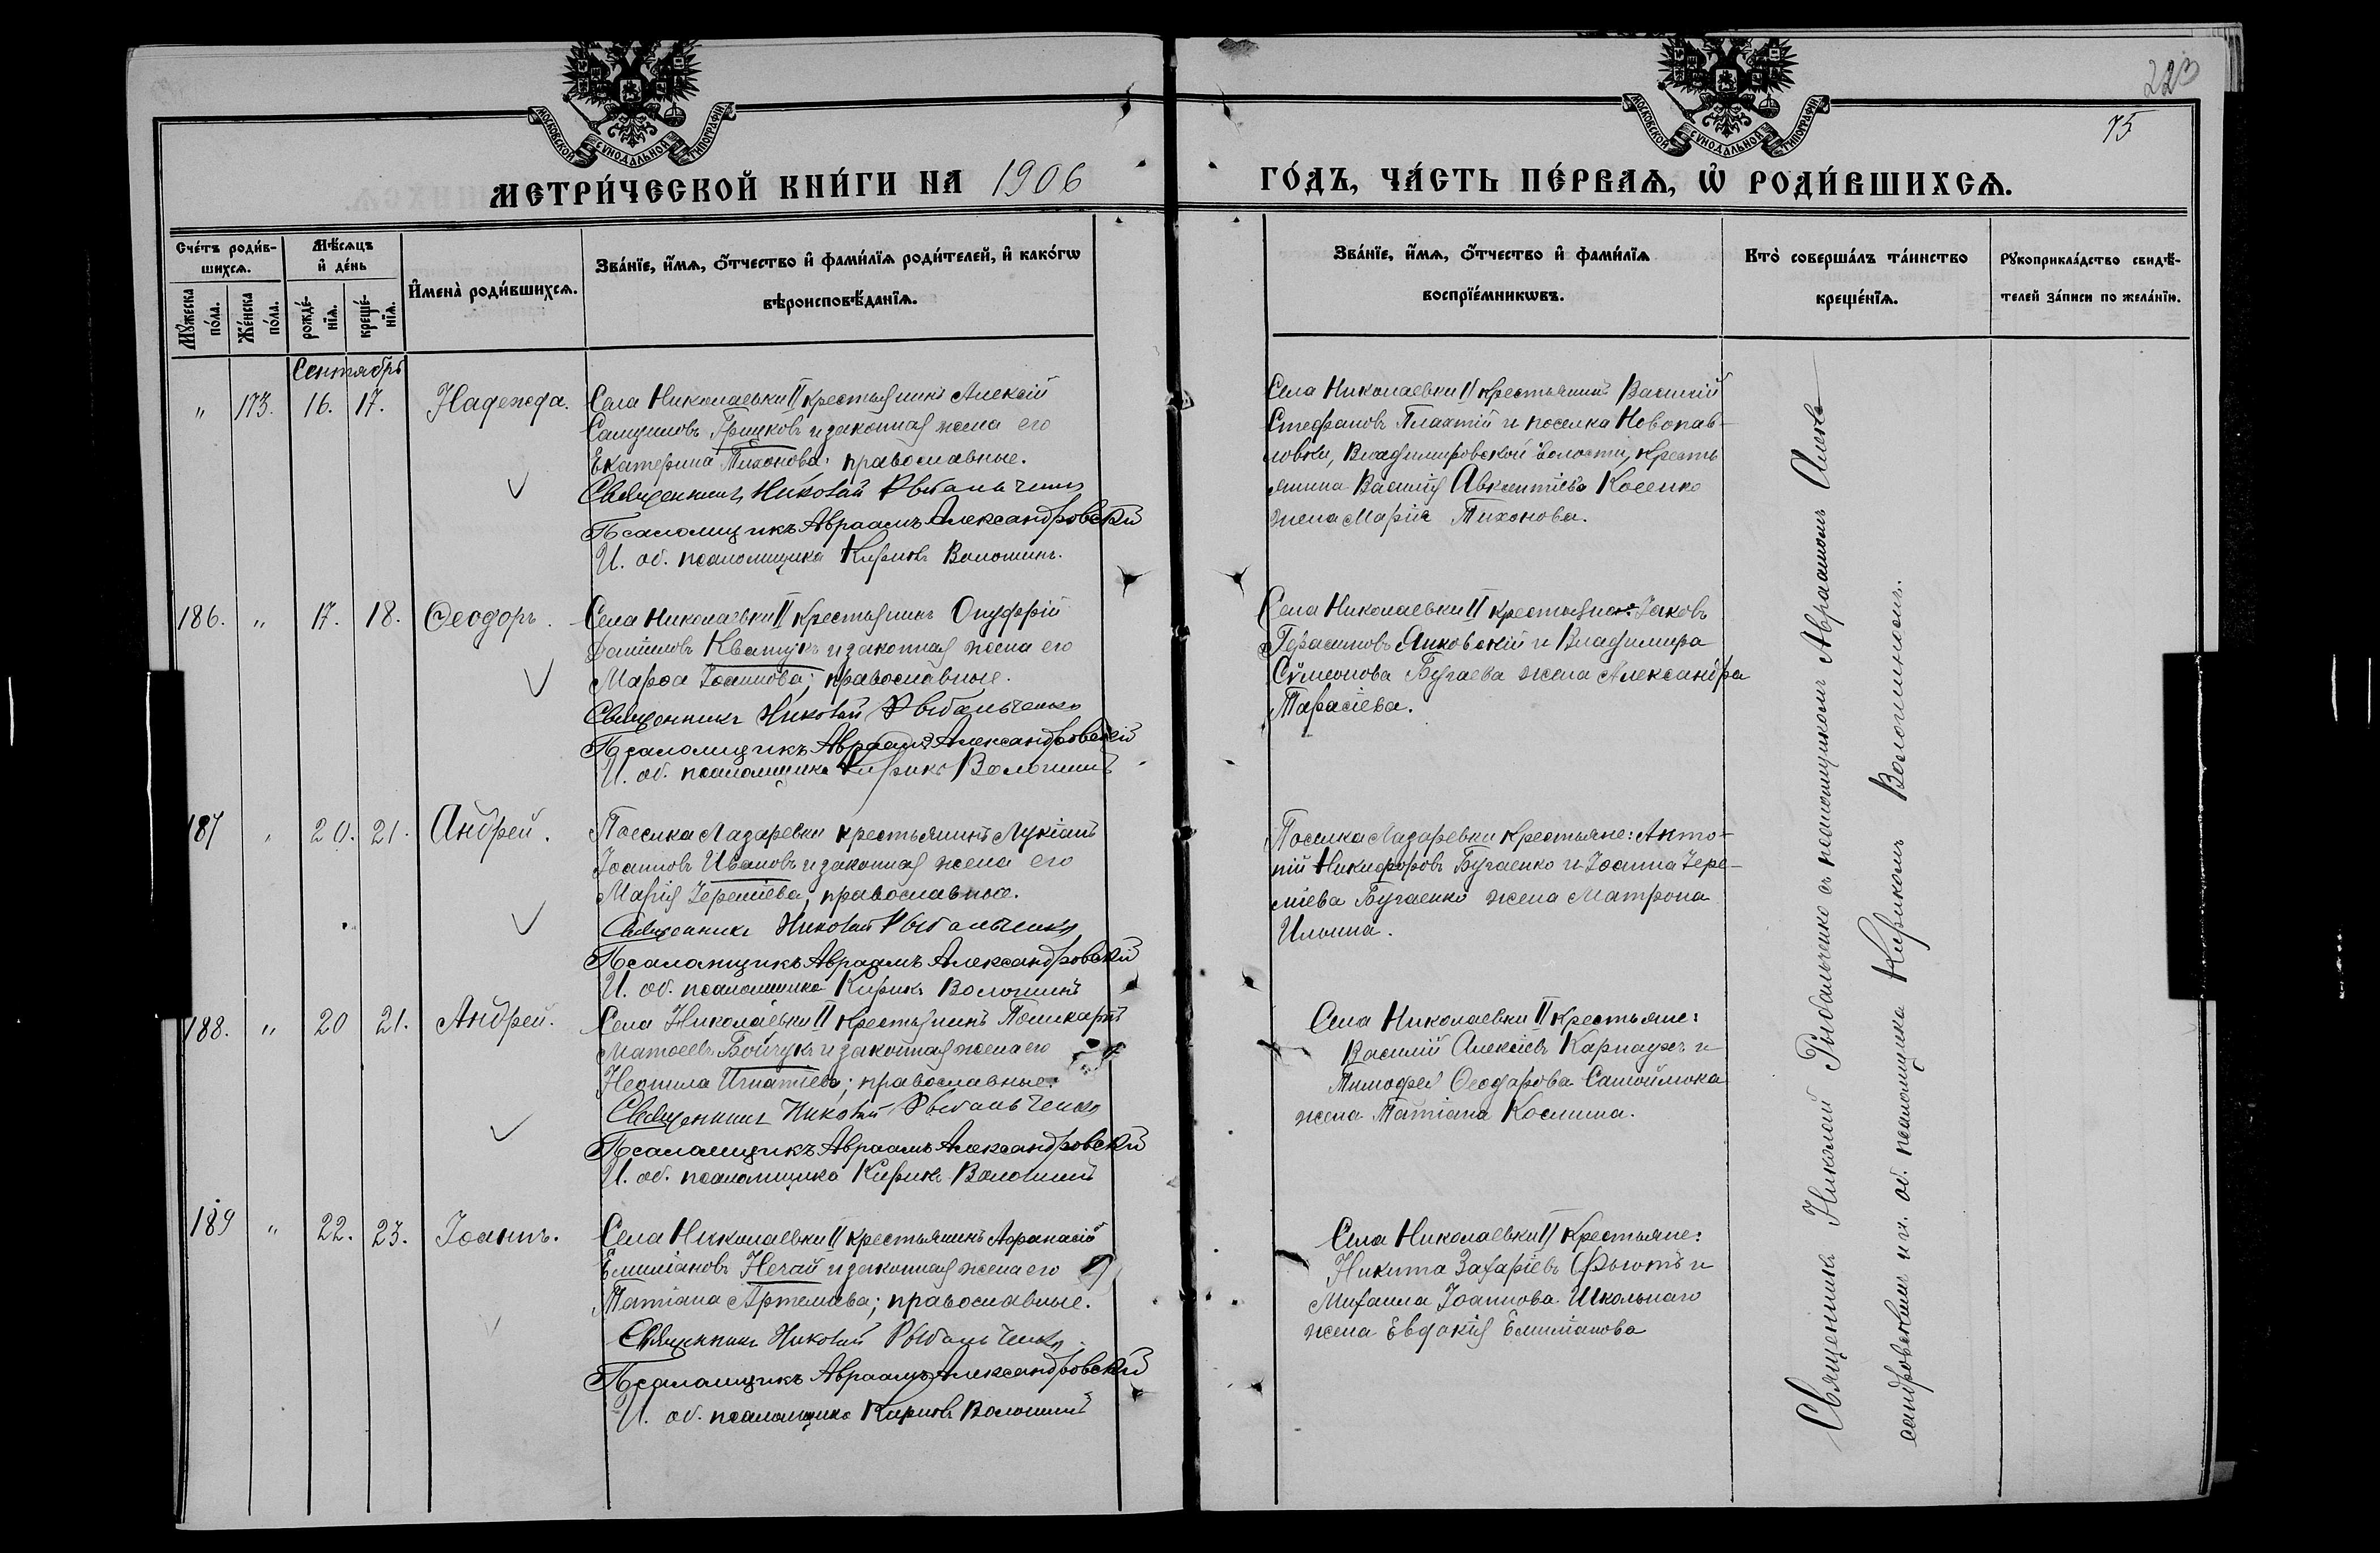 223
75
МОСКОВСКОЙ СѴНОДАЛЬНОЙ ТИПОГРАФІИ
МОСКОВСКОЙ СѴНОДАЛЬНОЙ ТИПОГРАФІИ
МЕТРИ́ЧЕСКОЙ КНИ́ГИ НА 1906
ГО́ДЪ, ЧА́СТЬ ПЕ́РВАѦ, Ѡ҆ РОДИ́ВШИХСѦ.
Сче́тъ роди́в-
шихсѧ.
Мѣ́сѧцъ
и҆ де́нь
Мꙋ́жеска
по́ла.
Же́нска
по́ла.
рожде́-
нїѧ.
креще́-
нїѧ.
И҆мена̀ роди́вшихсѧ.
Зва́нїе, и҆́мѧ, ѻ҆́тчество и҆ фами́лїѧ роди́телей, и҆ како́гѡ
вѣроисповѣ́данїѧ.
Зва́нїе, и҆́мѧ, ѻ҆́тчество и҆ фами́лїѧ
воспрїе́мникѡвъ.
Кто̀ соверша́лъ та́инство
креще́нїѧ.
Рꙋкоприкла́дство свидѣ́-
телей за́писи по жела́нїю.
Сентябрь
" 173. 16. 17. Надежда.
Села Николаевки II крестьянинъ Алексій
Самуиловъ Грицковъ и законная жена его
Екатерина Тихонова; православные.
Священникъ Николай Рыбальченко
Псаломщикъ Авраамъ Александровскій
И. об. псаломщика Кирикъ Волошинъ.
Села Николаевки II крестьянинъ Василій
Стефановъ Плахтій и поселка Новопав-
ловки, Владимировской волости, кресть
янина Василія Авксентіева Косенко
жена Марія Тихонова.
186. " 17. 18. Ѳеодоръ.
Села Николаевки II крестьянинъ Онуфрій
Даніиловъ Квашукъ и законная жена его
Марѳа Іоаннова; православные.
Священникъ Николай Рыбальченко
Псаломщикъ Авраамъ Александровскій
И. об. псаломщика Кирикъ Волошинъ
Села Николаевки II крестьяне: Іаковъ
Герасимовъ Янковскій и Владимира
Сѵмеонова Бугаева жена Александра
Тарасіева.
187 " 20. 21. Андрей.
Поселка Лазаревки крестьянинъ Лукіанъ
Іоанновъ Ивановъ и законная жена его
Марія Іереміева; православные.
Священникъ Николай Рыбальченко
Псаломщикъ Авраамъ Александровскій
И. об. псаломщика Кирикъ Волошинъ
Поселка Лазаревки крестьяне: Анто-
ній Никифоровъ Бугаенко и Іоанна Іере-
міева Бугаенко жена Матрона
Ильина.
188. " 20 21. Андрей.
Села Николаевки II крестьянинъ Поликарпъ
Матѳеевъ Бойчукъ и законная жена его
Неонила Игнатіева; православные.
Священникъ Николай Рыбальченко
Псаломщикъ Авраамъ Александровскій
И. об. псаломщика Кирикъ Волошинъ
Села Николаевки II крестьяне:
Василій Алексіевъ Карнаухъ и
Тимофея Ѳеодорова Самойлюка
жена Татіана Космина.
189 " 22. 23. Іоаннъ.
Села Николаевки II крестьянинъ Аѳанасій
Емиліановъ Нечай и законная жена его
Татіана Артеміева; православные.
Священникъ Николай Рыбальченко.
Псаломщикъ Авраамъ Александровскій
И. об. псаломщика Кирикъ Волошинъ
Села Николаевки II крестьяне:
Никита Захаріевъ и
Михаила Іоаннова Школьнаго
жена Евдокія Емиліанова
Священникъ Николай Рыбальченко съ псаломщикомъ Авраамомъ Алек-
сандровскимъ и и. об. псаломщика Кирикомъ Волошинымъ.